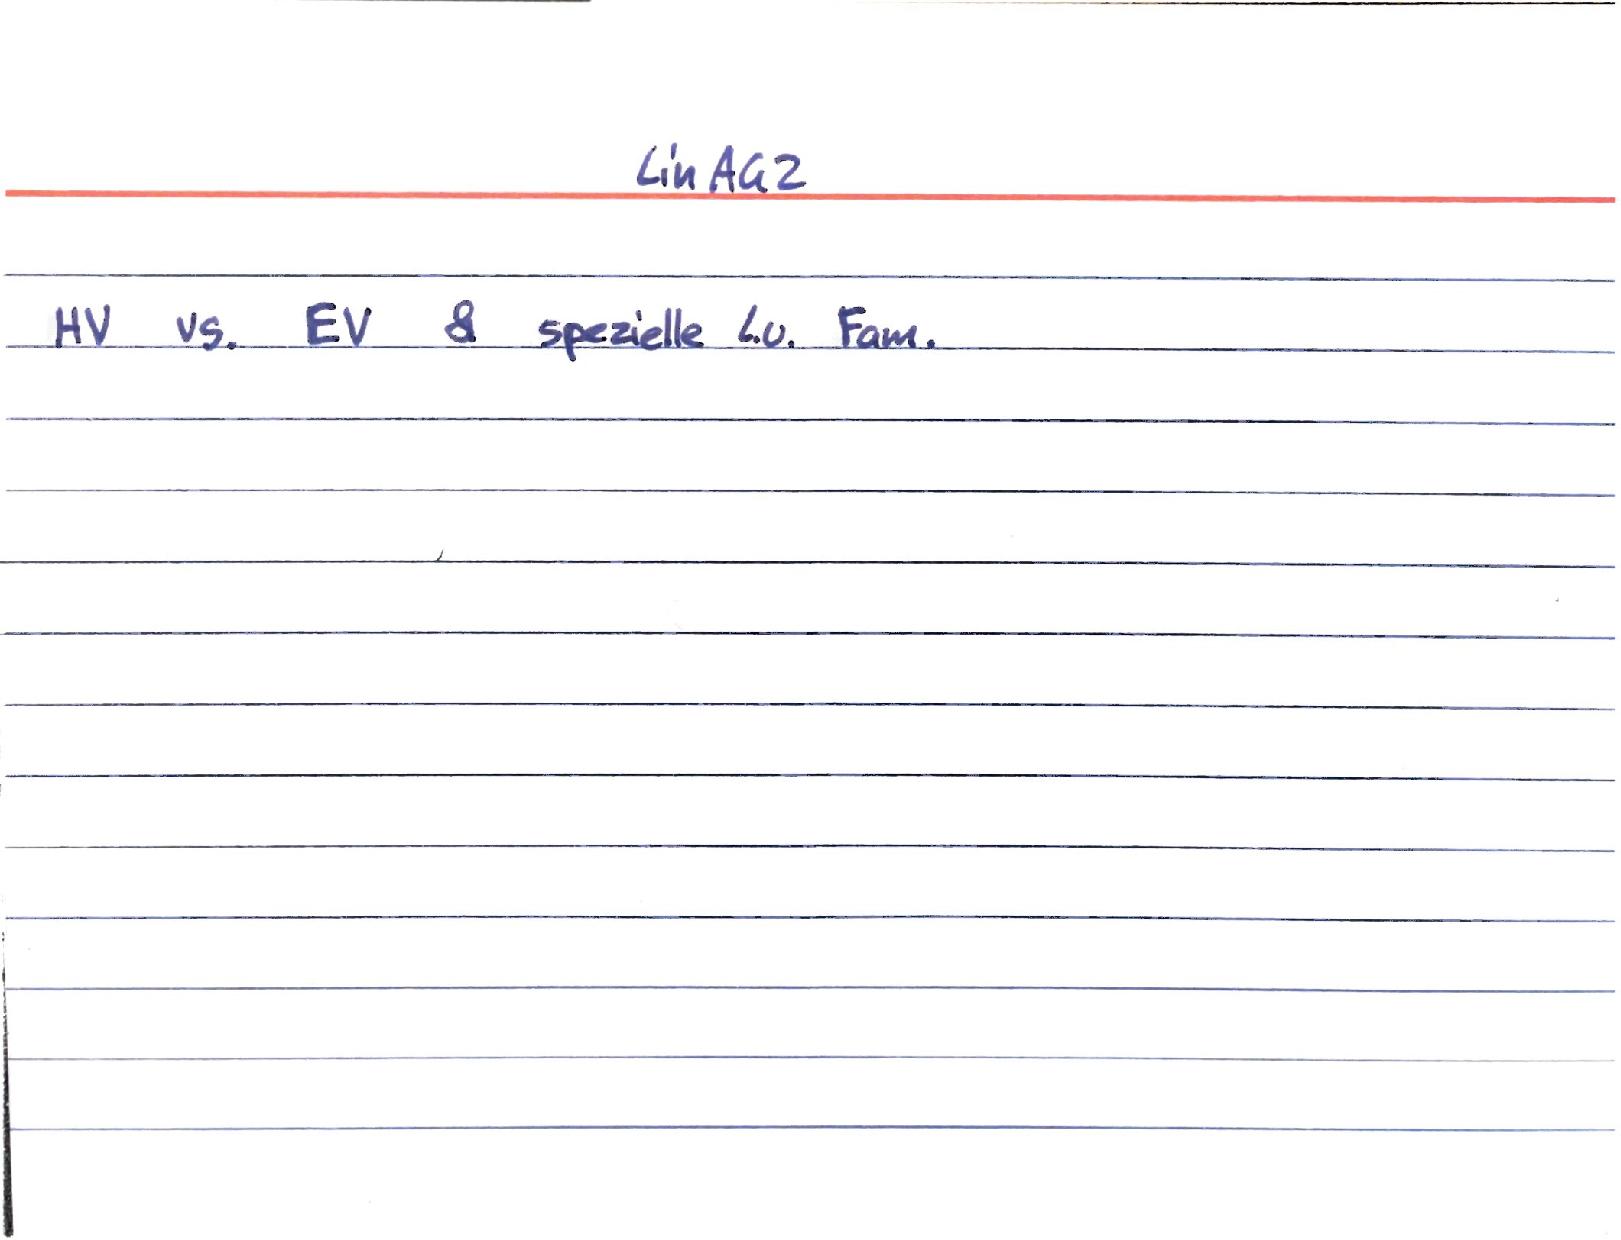 LinAG2
HV vs. EV & spezielle l.u. Fam.